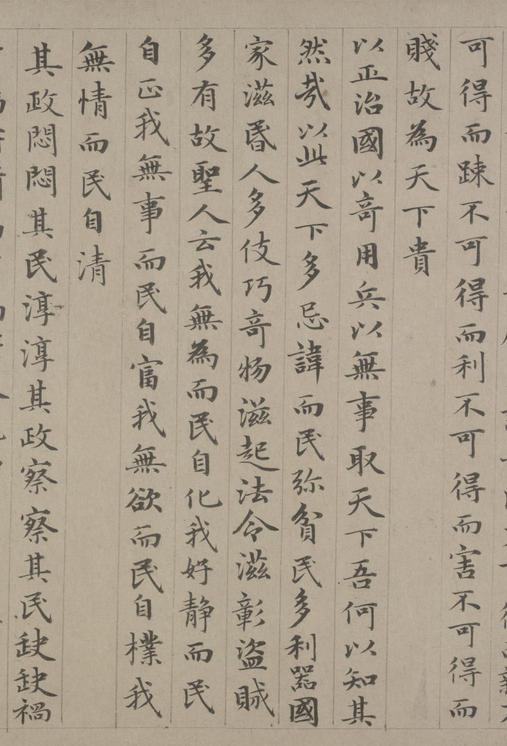 可得而踈不可得而利不可得而害不可得而
賤故為天下貴
以正治國以竒用兵以無事取天下吾何以知其
然哉以此天下多忌諱而民弥貧民多利器國
家滋昬人多伎巧竒物滋起法令滋彰盗賊
多有故聖人云我無為而民自化我好静而民
自正我無事而民自富我無欲而民自樸我
無情而民自清
其政悶悶其民淳淳其政察察其民缺缺禍